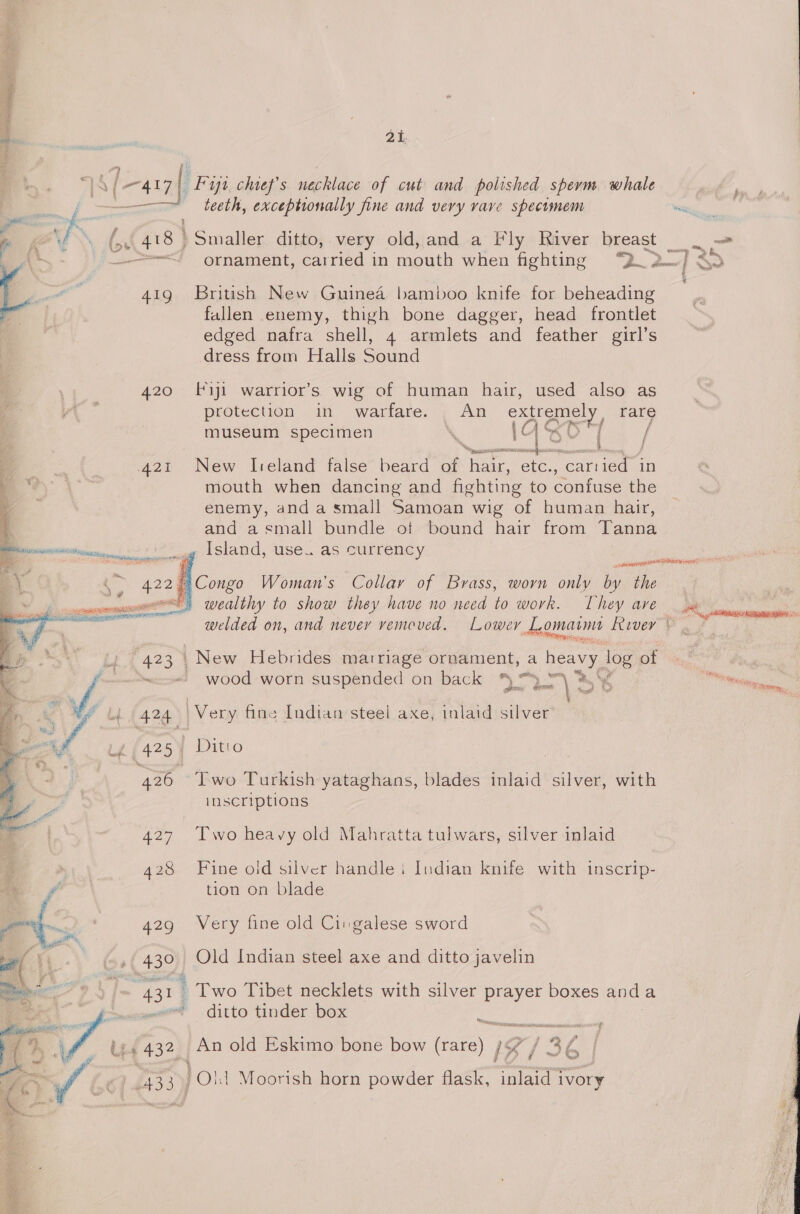 21
417 Fiji chief's necklace of cut and polished sperm whale
teeth, exceptionally fine and very rare specimem
418 Smaller ditto, very old, and a Fly River breast
ornament, carried in mouth when fighting
419 British New Guinea bamboo knife for beheading
fallen enemy, thigh bone dagger, head frontlet
edged nafra shell, 4 armlets and feather girl's
dress from Halls Sound
420 Fiji warrior's wig of human hair, used also as
protection in warfare. An extremely rare
museum specimen
421 New Ireland false beard of hair, etc., carried in
mouth when dancing and fighting to confuse the
enemy, and a small Samoan wig of human hair,
and a small bundle of bound hair from Tanna
Island, use.. as currency
422 Congo Woman's Collar of Brass, worn only by the
wealthy to show they have no need to work. They are
welded on, and never removed. Lower Lomaimi River
423 New Hebrides marriage ornament, a heavy log of
wood worn suspended on back
424 Very fine Indian steel axe, inlaid silver
425 Ditto
426 Two Turkish yataghans, blades inlaid silver, with
inscriptions
427 Two heavy old Mahratta tulwars, silver inlaid
428 Fine old silver handle; Indian knife with inscrip-
tion on blade
429 Very fine old Cingalese sword
430 Old Indian steel axe and ditto javelin
431 Two Tibet necklets with silver prayer boxes and a
ditto tinder box
432 An old Eskimo bone bow (rare)
433 Old Moorish horn powder flask, inlaid ivory